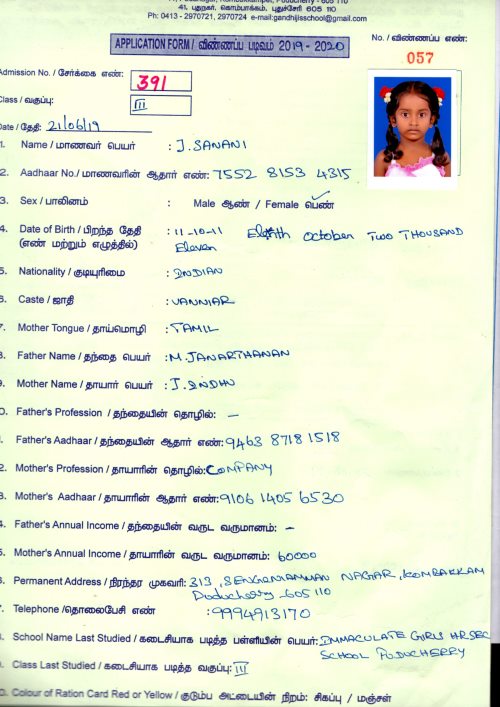 41, புதுநகர், கொம்பாக்கம், புதுச்சேரி - 605 110
Ph: 0413 - 2970721, 2970724 e-mail:gandhijisschool@gmail.com
APPLICATION FORM / விண்ணப்ப படிவம் 2019 - 2020
No. / விண்ணப்ப எண்:
057
Admission No. / சேர்க்கை எண்: 391
Class / வகுப்பு: III
Date / தேதி: 21/06/19
1. Name / மாணவர் பெயர் : J. SANANI
2. Aadhaar No./ மாணவரின் ஆதார் எண்: 7552 8153 4315
3. Sex / பாலினம் : Male ஆண் / Female பெண்
4. Date of Birth / பிறந்த தேதி : 11-10-11 October TWO THOUSAND
(எண் மற்றும் எழுத்தில்) Eleven
5. Nationality / குடியுரிமை : INDIAN
6. Caste / ஜாதி : VANNIAR
7. Mother Tongue / தாய்மொழி : TAMIL
8. Father Name / தந்தை பெயர் : M. JANARTHANAN
9. Mother Name / தாயார் பெயர் : J. INDHU
0. Father's Profession / தந்தையின் தொழில்: –
1. Father's Aadhaar / தந்தையின் ஆதார் எண்: 9463 8718 1518
2. Mother's Profession / தாயாரின் தொழில்: COMPANY
3. Mother's Aadhaar / தாயாரின் ஆதார் எண்: 9106 1405 6530
4. Father's Annual Income / தந்தையின் வருட வருமானம்: –
5. Mother's Annual Income / தாயாரின் வருட வருமானம்: 60000
6. Permanent Address / நிரந்தர முகவரி: 313, SENGENIAMMAN NAGAR, KOMBAKKAM
Puducherry - 605 110
7. Telephone /தொலைபேசி எண் : 9994913170
8. School Name Last Studied / கடைசியாக படித்த பள்ளியின் பெயர்: IMMACULATE GIRLS HR.SEC
SCHOOL PUDUCHERRY
9. Class Last Studied / கடைசியாக படித்த வகுப்பு: III
0. Colour of Ration Card Red or Yellow / குடும்ப அட்டையின் நிறம்: சிகப்பு / மஞ்சள்